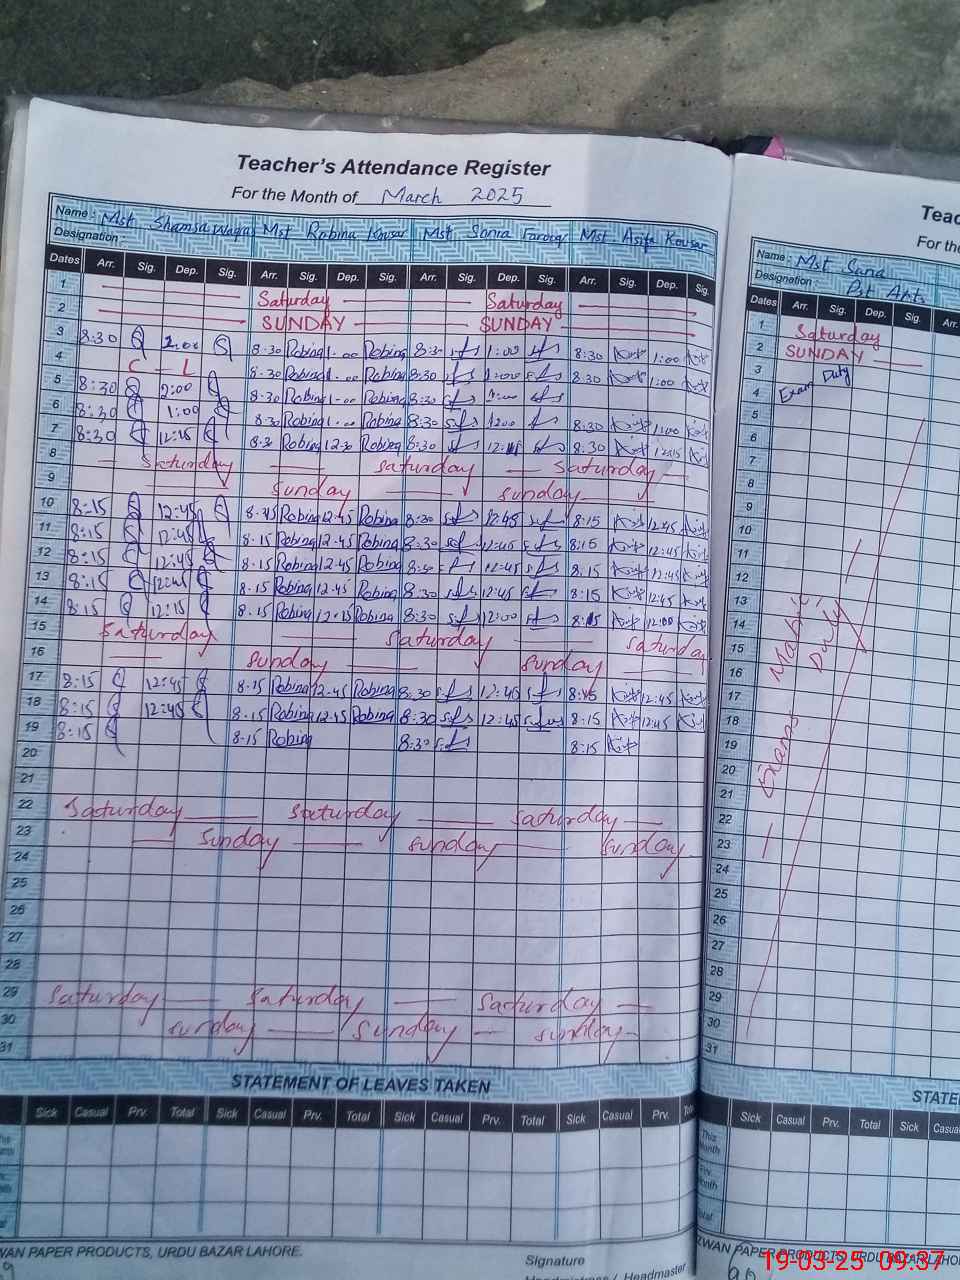 Teacher's Attendance Register
For the Month of March 2025
Name : Mst. Shamsa Mst Robina Kousar Mst Sonia Farooq Mst. Asifa Kousar
Designation :
Dates Arr. Sig. Dep. Sig. Arr. Sig. Dep. Sig. Arr. Sig. Dep. Sig. Arr. Sig. Dep. Sig.
1 Saturday Saturday
2 SUNDAY SUNDAY
3 8:30 2:00 8.30 Robina 1.00 Robina 8:30 1:00 8:30 1:00
4 C L 8.30 Robina 1.00 Robina 8:30 8:30 1:00
5 8:30 2:00 8.30 Robina 1.00 Robina 8:30
6 8:30 1:00 8.30 Robina 1.00 Robina 8:30 1200 8:30 1:00
7 8:30 12:15 8.30 Robina 12.30 Robina 8:30 8:30 12:15
8 Saturday Saturday Saturday
9 Sunday Sunday
10 8:15 12:45 Robina 12.45 Robina 8:30 12:45 8:15 12:45
11 8:15 12:45 8.15 Robina 12.45 Robina 8:30 12:45 8:15 12:45
12 8:15 12:45 8.15 Robina 12.45 Robina 8:30 12:45 8.15 12:45
13 8:15 12:45 8.15 Robina 12.45 Robina 8:30 12:45 8:15 12:45
14 8:15 12:15 8.15 Robina 12.15 Robina 8:30 12:00 8:15 12:00
15 Saturday Saturday Saturday
16 Sunday Sunday
17 8:15 12:45 8.15 Robina 12.45 Robina 8:30 12:45 8:15 12:45
18 8:15 12:45 8.15 Robina Robina 8:30 12:45 8:15 12:45
19 8:15 8.15 Robina 8:30 8:15
20
21
22 Saturday Saturday Saturday
23 Sunday Sunday Sunday
24
25
26
27
28
29 Saturday Saturday Saturday
30 Sunday Sunday Sunday
31
STATEMENT OF LEAVES TAKEN
Sick Casual Prv. Total Sick Casual Prv. Total Sick Casual Prv. Total Sick Casual Prv.
WAN PAPER PRODUCTS, URDU BAZAR LAHORE.
Signature
Headmistress / Headmaster
Teac
For the
Name : Mst Sana
Designation :
Dates Arr. Sig. Dep. Sig. Arr.
1 Saturday
2 SUNDAY
3
4 Exam Duty
5
6
7
8
9
10
11
12
13
14
15
16
17
18
19
20
21
22
23
24
25
26
27
28
29
30
31
Exams Matric Duty
STATE
Sick Casual Prv. Total Sick Casua
This Month
Prv. Month
Total
ZWAN PAPER PRODUCTS, URDU BAZAR LAHO
19-03-25 09:37